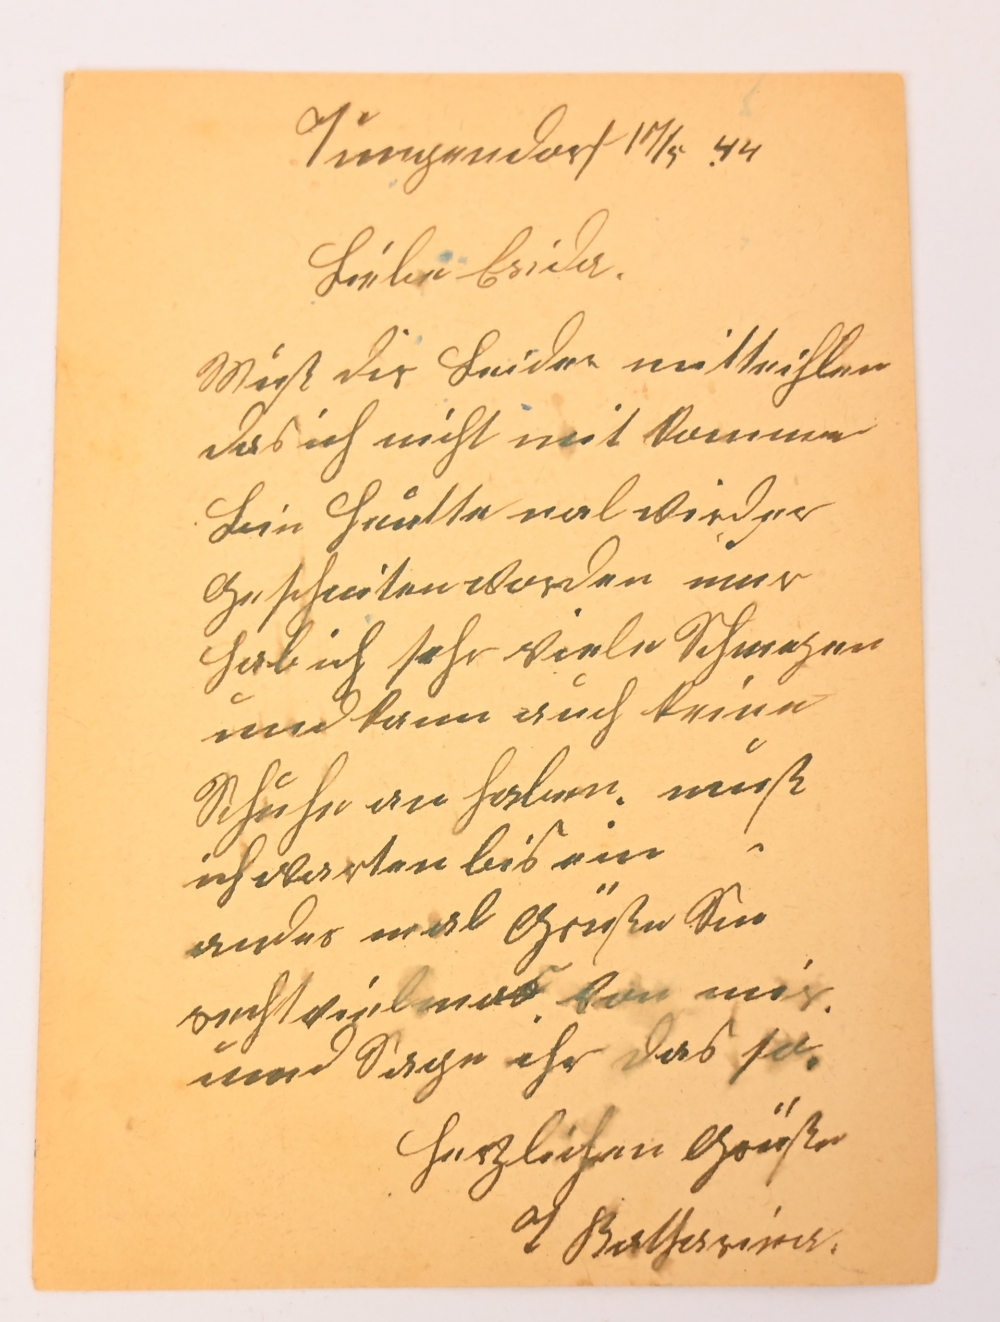 Tungendorf 17/5 44
Liebe Erida.
Muß dir Leider mitteihlen
das ich nicht mit komme
bin Heutte mal wieder
Geschniten worden nur
hab ich sehr viele Schmezen
und kann auch keine
Schuhe an haben. muß
ich warten bis ein
ander mal Grüße Sie
recht vielmas von mir.
und Sage ihr das so.
Herzlichen Grüße
Katharina.